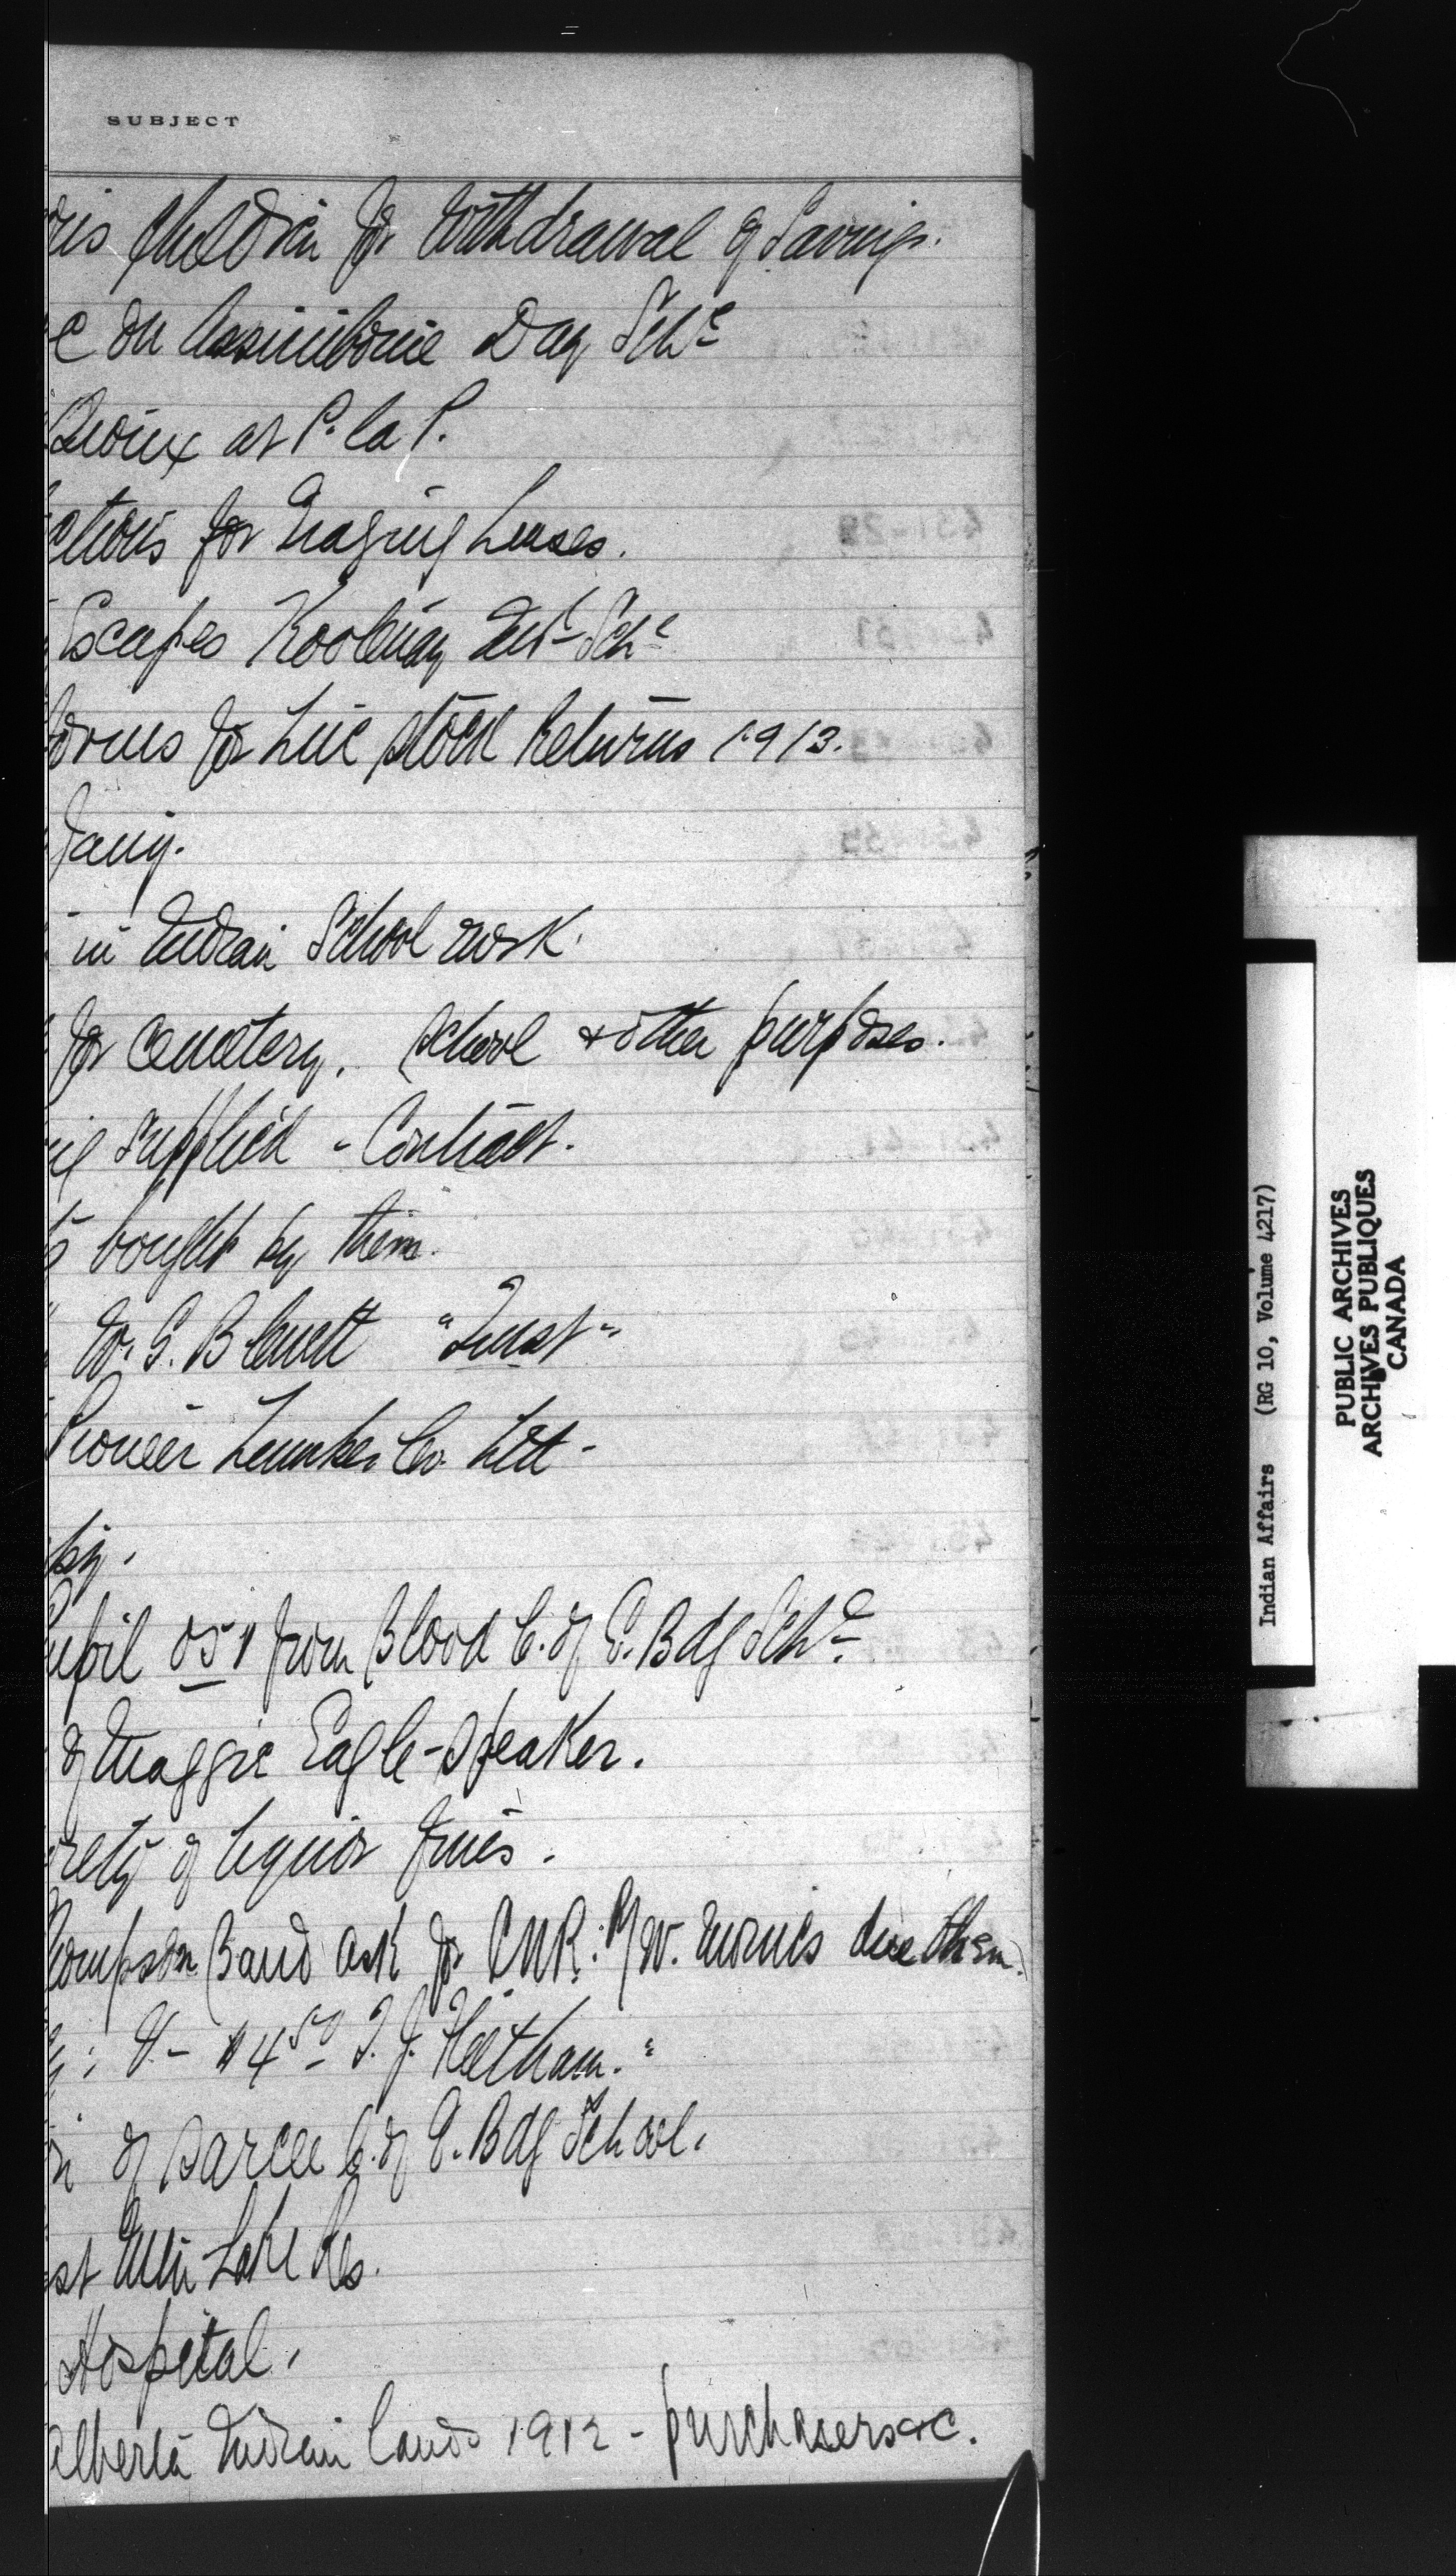 SUBJECT
children for Withdrawal of Savings.
on Assiniboine Day Schl
Sioux at P. la P.
for Grazing Leases.
Escapes Kootenay Indl Schl
for Live stock Returns 1913.
in Indian School work.
for Cemetery, School & other purposes.
supplied - Contract.
bought by them.
W. G. Blewett "Trust"
Pioneer Lumber Co. Ltd -
051 from Blood C. of E. Bdg Schl
of Maggie Eagle-Speaker.
of liquor fines.
Band ask for C.N.R. R/W. monies due them.
$4.50 T. J. Fleetham."
of Sarcee C. of E. Bdg School.
Lake Res.
Hospital.
Alberta Indian Lands 1912 - purchasers &c.
Indian Affairs (RG 10, Volume 4217)
PUBLIC ARCHIVES
ARCHIVES PUBLIQUES
CANADA